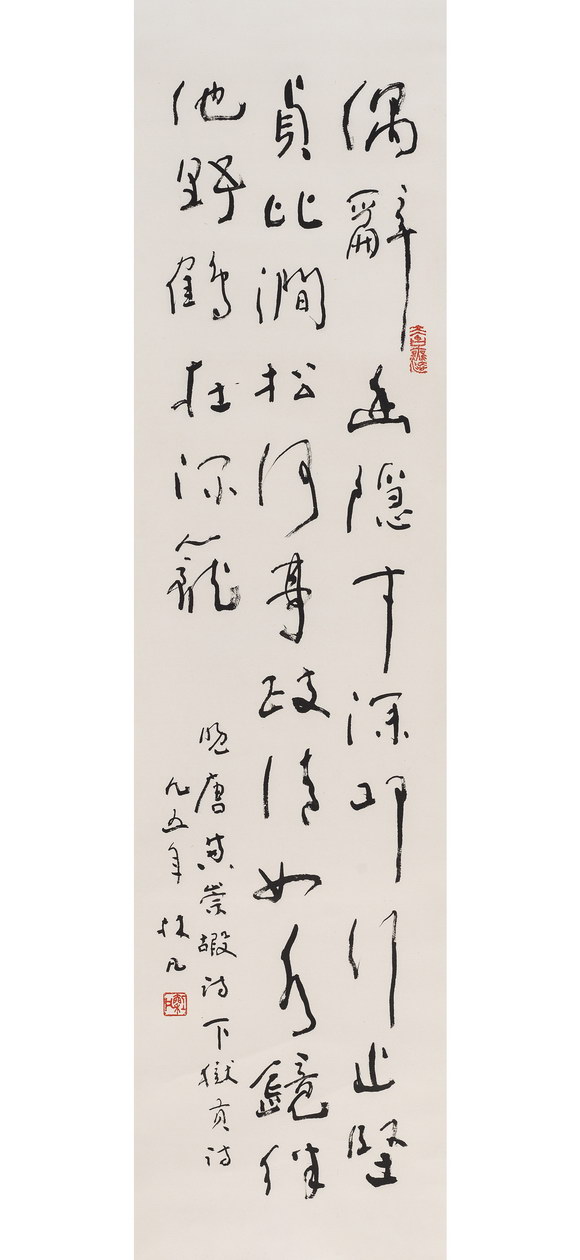 偶辭幽隱于深邛行止堅
貞比澗松何事政清如水鏡絆
他野鶴在深籠
晚唐黃崇嘏詩下獄貢詩
九五年林凡